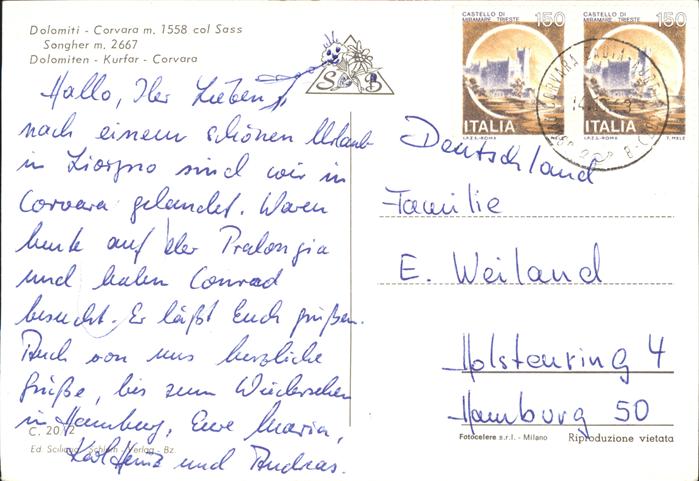 Dolomiti - Corvara m. 1558 col Sass
Songher m. 2667
Dolomiten - Kurfar - Corvara
S B
Hallo, Ihr Lieben,
nach einem schönen Urlaub
in sind wir in
Corvara gelandet. Waren
heute auf der Pralongia
und haben Conrad
besucht. Er läßt Euch grüßen.
Auch von uns herzliche
Grüße, bis zum Wiedersehen
in Hamburg, Eure Maria,
Karl Heinz und Andreas.
C. 20
Ed Sciliar - Verlag - Bz.
CASTELLO DI
MIRAMARE TRIESTE
150
ITALIA
I.P.Z.S. - ROMA
CASTELLO DI
MIRAMARE TRIESTE
150
ITALIA
I.P.Z.S. - ROMA T. MELE
CORVARA
Deutschland
Familie
E. Weiland
Holstenring 4
Hamburg 50
Fotocelere s.r.l. - Milano
Riproduzione vietata